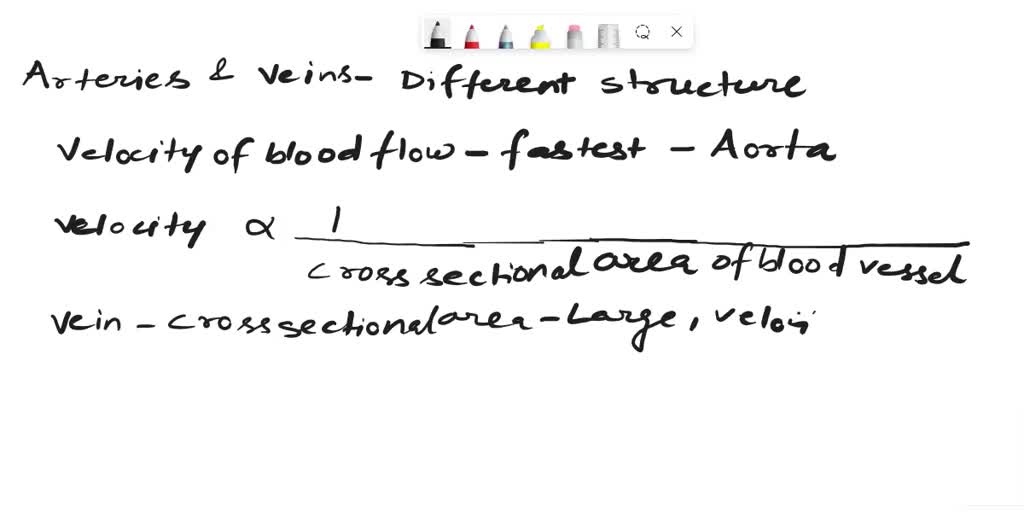 Arteries & Veins- Different structure
Velocity of blood flow - fastest - Aorta
velocity ∝ 1
cross sectional area of blood vessel
vein - cross sectional area - Large,